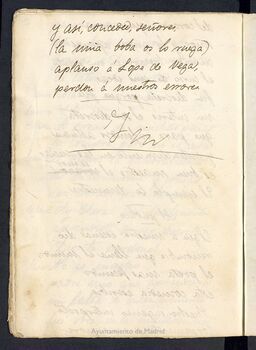 y así, conceded, señores
(la niña boba os lo ruega)
aplauso á Lope de Vega,
perdon á nuestros errores
Fin
Ayuntamiento de Madrid